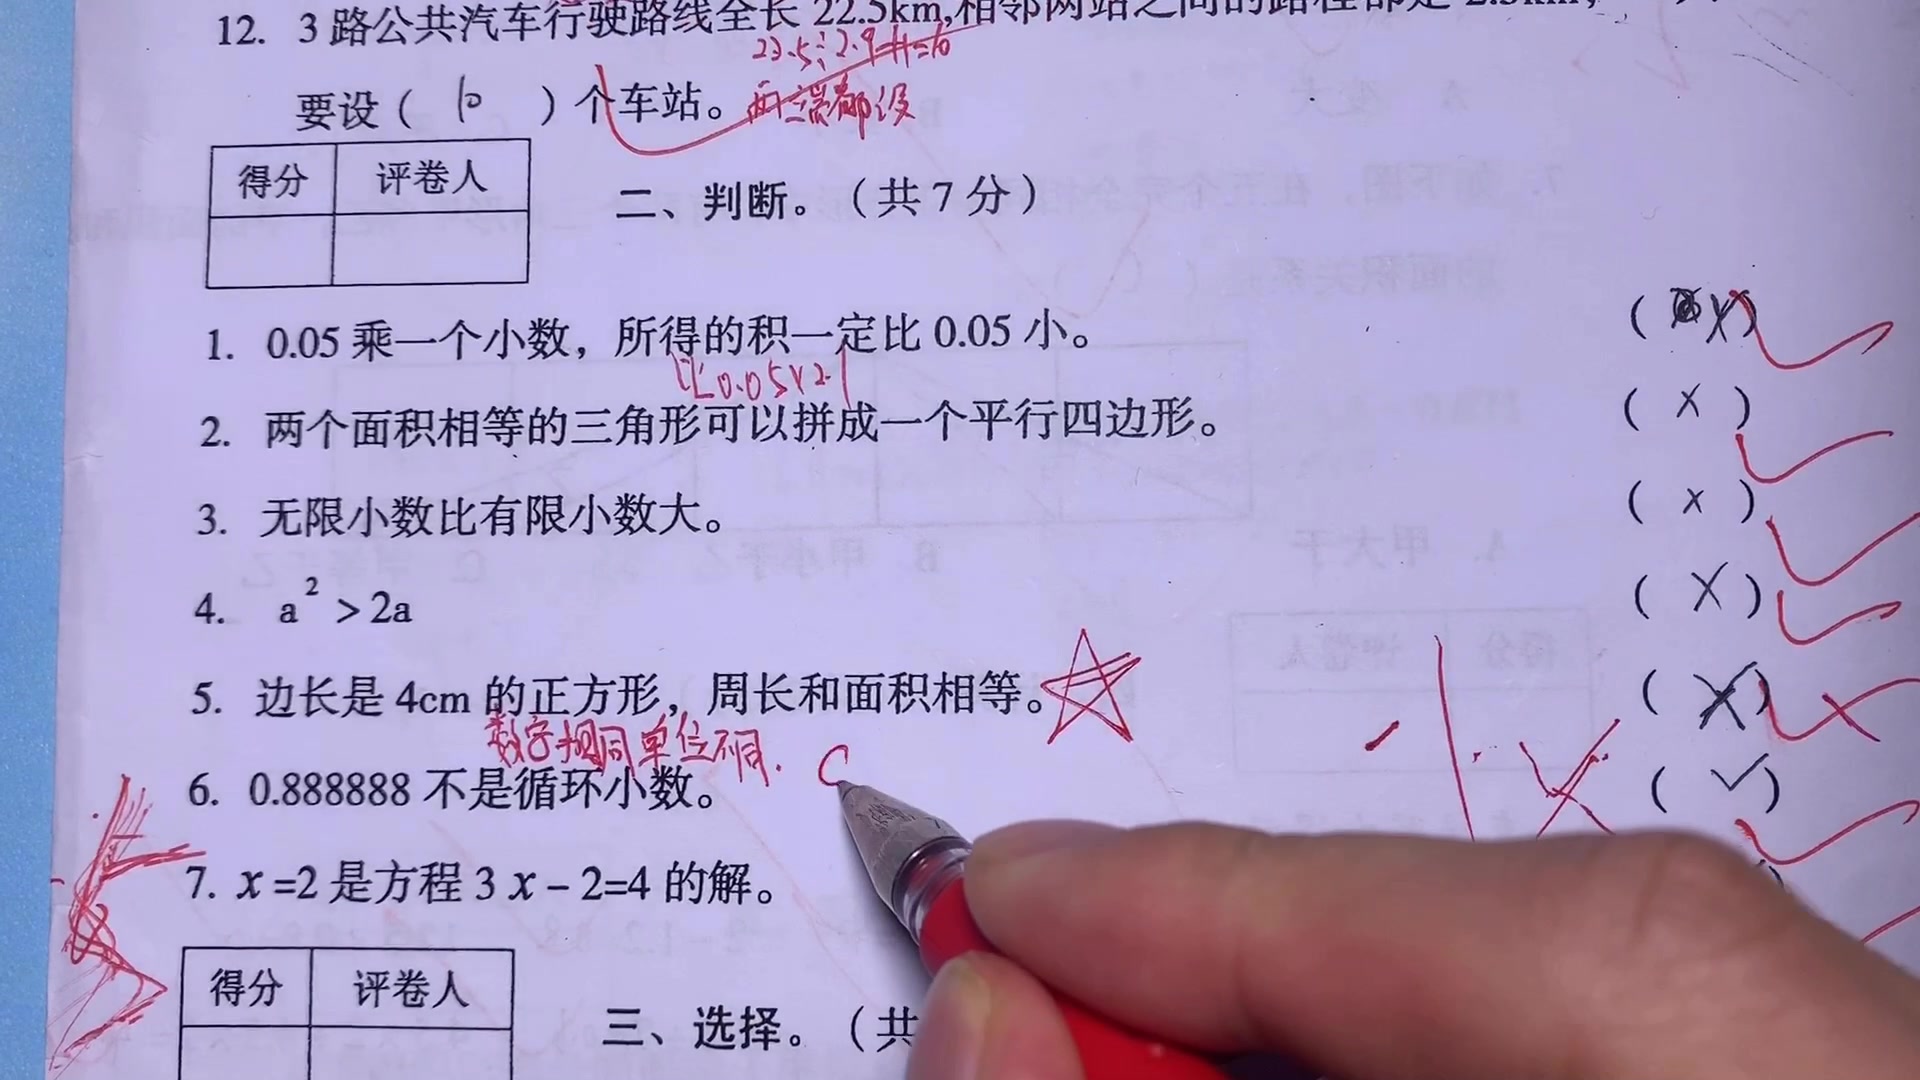 12. 3路公共汽车行驶路线全长22.5km,相邻两站之间的路程都是2.5km,
要设（ 10 ）个车站。两端都设
得分 评卷人
二、判断。（共7分）
1. 0.05乘一个小数，所得的积一定比0.05小。 ( X )
比0.05×2.1
2. 两个面积相等的三角形可以拼成一个平行四边形。 ( X )
3. 无限小数比有限小数大。 ( X )
4. a² > 2a ( X )
5. 边长是4cm的正方形，周长和面积相等。 ( X )
数字相同单位不同.
6. 0.888888不是循环小数。 ( ✓ )
7. x=2是方程3x－2=4的解。
得分 评卷人
三、选择。（共